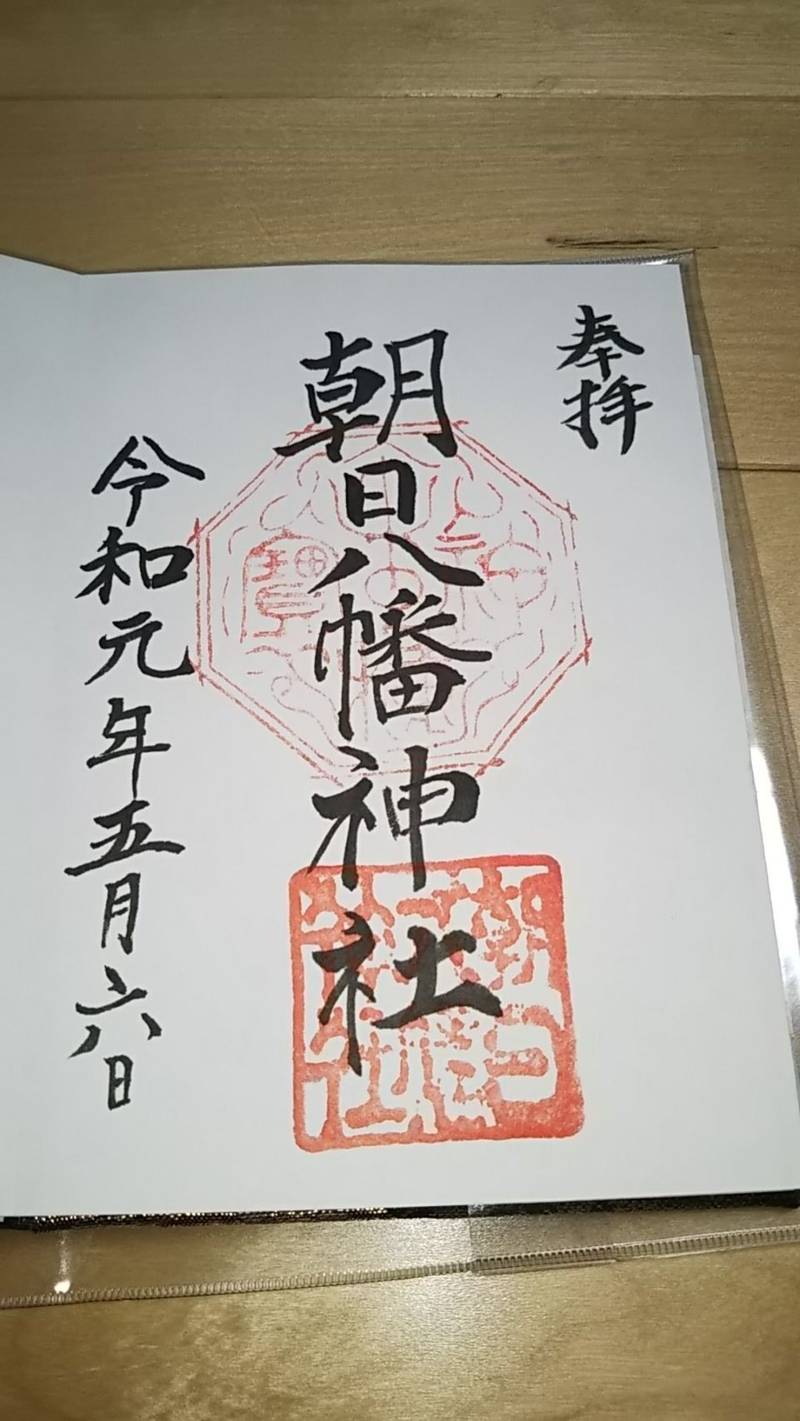 奉拝
朝日八幡神社
令和元年五月六日